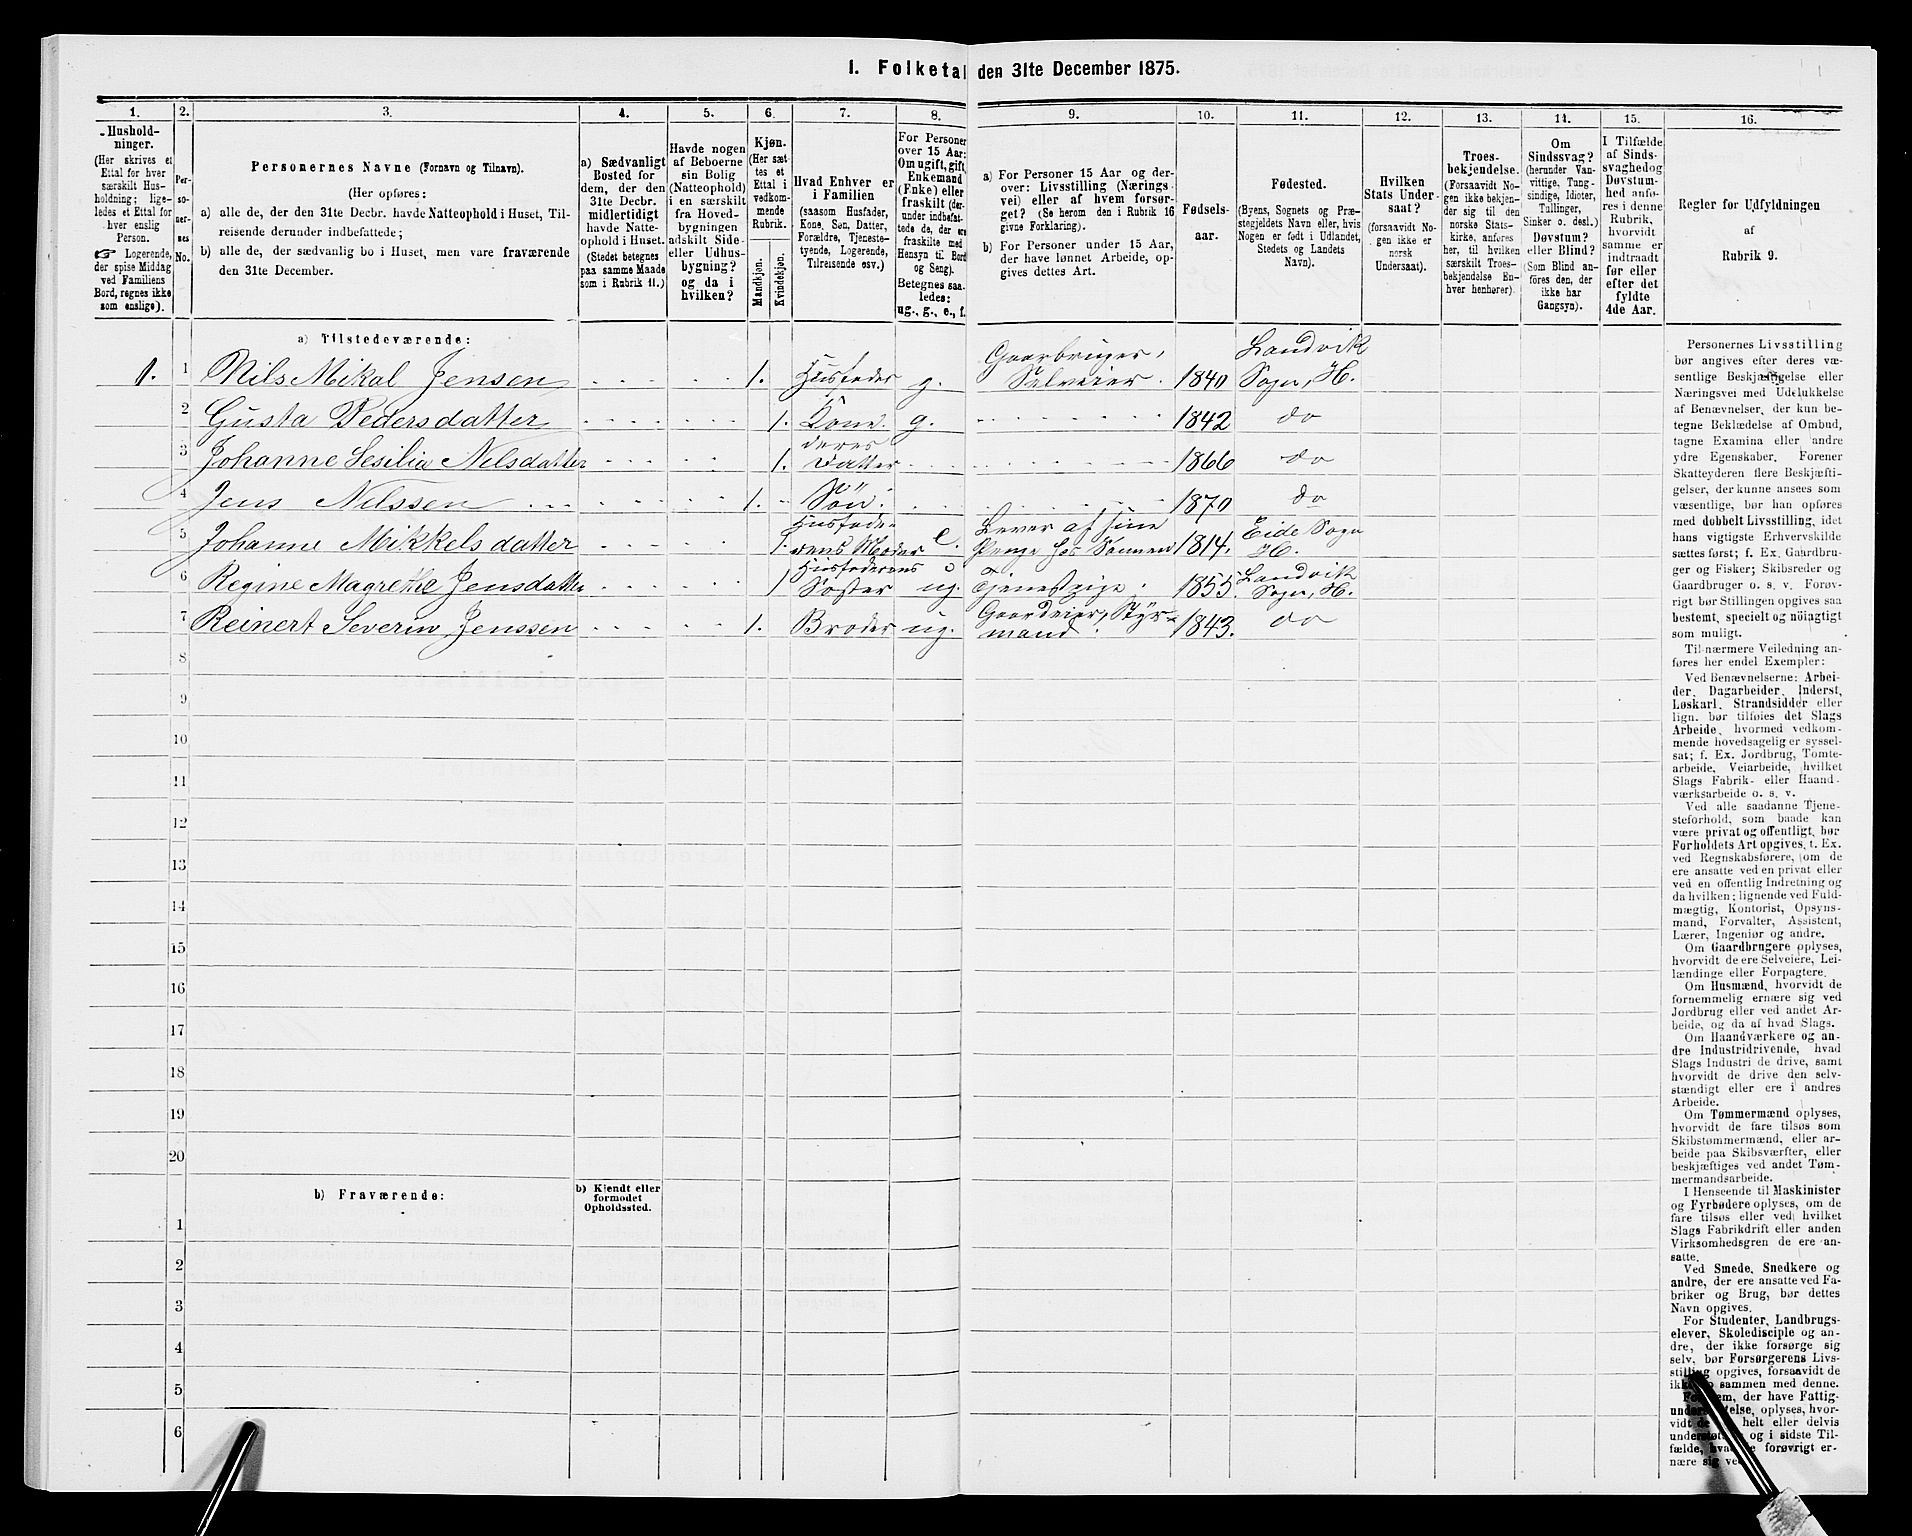 1. Folketal den 31te December 1875.
1. 2. 3. 4. 5. 6. 7. 8. 9. 10. 11. 12. 13. 14. 15. 16.
Hushold-
ninger.
(Her skrives et
Ettal for hver
særskilt Hus-
holdning; lige-
ledes et Ettal for
hver enslig
Person.
☞ Logerende,
der spise Middag
ved Familiens
Bord, regnes ikke
som enslige).
Per-
so-
ner-
nes
No.
Personernes Navne (Fornavn og Tilnavn).
(Her opføres:
a) alle de, der den 31te Decbr. havde Natteophold i Huset, Til-
reisende derunder indbefattede;
b) alle de, der sædvanlig bo i Huset, men vare fraværende
den 31te December.
a) Sædvanligt
Bosted for
dem, der den
31te Decbr.
midlertidigt
havde Natte-
ophold i Huset.
(Stedet betegnes
paa samme Maade
som i Rubrik 11.)
Havde nogen
af Beboerne
sin Bolig
(Natteophold)
i en særskilt
fra Hoved-
bygningen
adskilt Side-
eller Udhus-
bygning?
og da i
hvilken?
Kjøn.
(Her sæt-
tes et
Ettal i
vedkom-
mende
Rubrik.
Mandkjøn.
Kvindekjøn.
Hvad Enhver er
i Familien
(saasom Husfader,
Kone, Søn, Datter,
Forældre, Tjeneste-
tyende, Logerende,
Tilreisende osv.)
For Personer
over 15 Aar:
Om ugift, gift,
Enkemand
(Enke) eller
fraskilt (der-
under indbefat-
tede de, der ere
fraskilte med
Hensyn til Bord
og Seng).
Betegnes saa-
ledes:
ug., g., e., f.
a) For Personer 15 Aar og der-
over: Livsstilling (Nærings-
vei) eller af hvem forsør-
get? (Se herom den i Rubrik 16
givne Forklaring).
b) For Personer under 15 Aar,
der have lønnet Arbeide, op-
gives dettes Art.
Fødsels-
aar.
Fødested.
(Byens, Sognets og Præ-
stegjeldets Navn eller, hvis
Nogen er født i Udlandet,
Stedets og Landets
Navn).
Hvilken
Stats Under-
saat?
(forsaavidt No-
gen ikke er
norsk
Undersaat).
Troes-
bekjendelse.
(Forsaavidt No-
gen ikke bekjen-
der sig til den
norske Stats-
kirke, anføres
her, til hvilken
særskilt Troes-
bekjendelse En-
hver henhører).
Om
Sindssvag?
(herunder Van-
vittige, Tung-
sindige, Idioter,
Tullinger,
Sinker o. desl.)
Døvstum?
eller Blind?
(Som Blind an-
føres den, der
ikke har
Gangsyn).
I Tilfælde
af Sinds-
svaghed og
Døvstum-
hed anfø-
res i denne
Rubrik,
hvorvidt
samme er
indtraadt
før eller
efter det
fyldte
4de Aar.
Regler for Udfyldningen
af
Rubrik 9.
a) Tilstedeværende:
1. 1 Nils Mikal Jensen 1. Husfader g. Gaarbruger, Selveier. 1840 Landvik Sogn, H.
2 Gusta Pedersdatter 1. Kone. g. 1842 do
3 Johanne Sesilia Nilsdatter 1. deres Datter 1866 do
4 Jens Nilssen 1. Søn. 1870 do
5 Johanne Mikkelsdatter 1. Husfaderens Moder e. Lever af sine Penge hos Sønnen 1814. Eide Sogn H.
6 Regine Magrethe Jensdatter 1 Husfaderens Søster ug. Tjenestpige. 1855. Landvik Sogn, H.
7 Reinert Severin Jenssen 1. Broder ug. Gaardeier, Styrmand. 1843. do
8
9
10
11
12
13
14
15
16
17
18
19
20
b) Fraværende:
b) Kjendt eller
formodet
Opholdssted.
1
2
3
4
5
6
Personernes Livsstilling
bør angives efter deres væ-
sentlige Beskjæftigelse eller
Næringsvei med Udelukkelse
af Benævnelser, der kun be-
tegne Beklædelse af Ombud,
tagne Examina eller andre
ydre Egenskaber. Forener
Skatteyderen flere Beskjæfti-
gelser, der kunne ansees som
væsentlige, bør han opføres
med dobbelt Livsstilling, idet
hans vigtigste Erhvervskilde
sættes først; f. Ex. Gaardbru-
ger og Fisker; Skibsreder og
Gaardbruger o. s. v. Forøv-
rigt bør Stillingen opgives saa
bestemt, specielt og nöiagtigt
som muligt.
Til nærmere Veiledning an-
føres her endel Exempler:
Ved Benævnelserne: Arbei-
der, Dagarbeider, Inderst,
Løskarl, Strandsidder eller
lign. bør tilføies det Slags
Arbeide, hvormed vedkom-
mende hovedsagelig er syssel-
sat; f. Ex. Jordbrug, Tomte-
arbeide, Veiarbeide, hvilket
Slags Fabrik- eller Haand-
værksarbeide o. s. v.
Ved alle saadanne Tjene-
steforhold, som baade kan
være privat og offentligt, bør
Forholdets Art opgives, t. Ex.
ved Regnskabsførere, om de
ere ansatte ved en privat eller
ved en offentlig Indretning og
da hvilken; lignende ved Fuld-
mægtig, Kontorist, Opsyns-
mand, Forvalter, Assistent,
Lærer, Ingeniør og andre.
Om Gaardbrugere oplyses,
hvorvidt de ere Selveiere, Lei-
lændinge eller Forpagtere.
Om Husmænd, hvorvidt de
fornemmelig ernære sig ved
Jordbrug eller ved andet Ar-
beide, og da af hvad Slags.
Om Haandværkere og an-
dre Industridrivende, hvad
Slags Industri de drive, samt
hvorvidt de drive den selv-
stændigt eller ere i andres
Arbeide.
Om Tømmermænd oplyses,
hvorvidt de fare tilsøs som
Skibstømmermænd, eller ar-
beide paa Skibsværfter, eller
beskjæftiges ved andet Tøm-
mermandsarbeide.
I Henseende til Maskinister
og Fyrbødere oplyses, om de
fare tilsøs eller ved hvilket
Slags Fabrikdrift eller anden
Virksomhedsgren de ere an-
satte.
Ved Smede, Snedkere og
andre, der ere ansatte ved Fa-
briker og Brug, bør dettes
Navn opgives.
For Studenter, Landbrugs-
elever, Skoledisciple og an-
dre, der ikke forsørge sig
selv, bør Forsørgerens Livs-
stilling opgives, forsaavidt de
sammen med denne.
der have Fattig-
oplyses, hvor-
helt eller delvis
og i sidste Til-
forøvrigt er-
nære sig